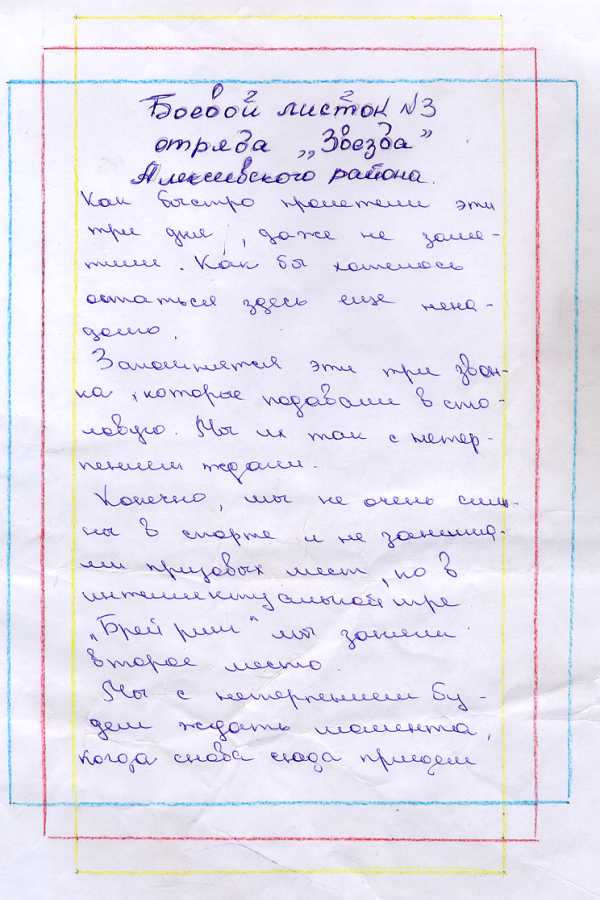 Боевой листок №3
отряда „Звезда"
Алексеевского района.
Как быстро пролетели эти
три дня, даже не заме-
тили. Как бы хотелось
остаться здесь еще нена-
долго.
Запомнятся эти три звон-
ка, которые подавали в сто-
ловую. Мы их так с нетер-
пением ждали.
Конечно, мы не очень силь-
ны в спорте и не занима-
ли призовых мест, но в
интеллектуальной игре
„Брейн ринг" мы заняли
второе место.
Мы с нетерпением бу-
дем ждать момента,
когда снова сюда приедем